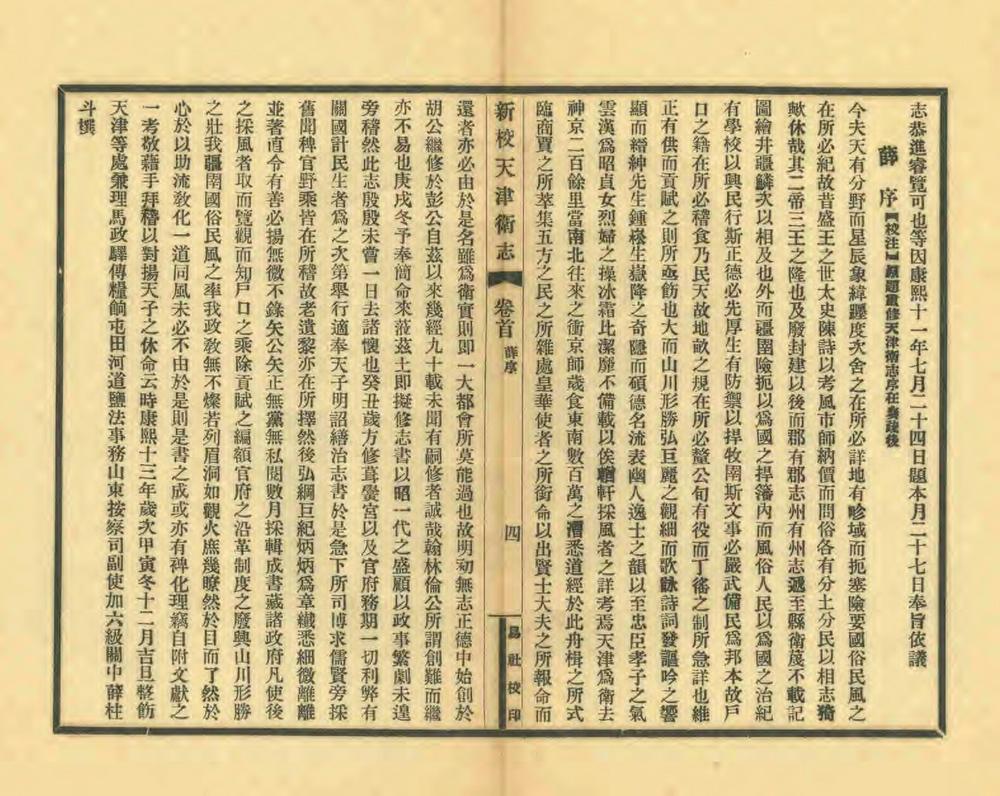 志恭進睿覽可也等因康熙十一年七月二十四日題本月二十七日奉旨依議
薛序【校注】原題重修天津衛志序在奏疏後
今夫天有分野而星辰象緯躔度次舍之在所必詳地有畛域而扼塞險要國俗民風之
在所必紀故昔盛王之世太史陳詩以考風市師納價而問俗各有分土分民以相志猗
歟休哉其二帝三王之隆也及廢封建以後而郡有郡志州有州志遞至縣衛蔑不載記
圖繪井疆鱗次以相及也外而疆圉險扼以為國之捍籓內而風俗人民以為國之治紀
有學校以興民行斯正德必先厚生有防禦以捍牧圉斯文事必嚴武備民為邦本故戶
口之籍在所必稽食乃民天故地畝之規在所必釐公旬有役而丁徭之制所急詳也維
正有供而貢賦之則所亟飭也大而山川形勝弘巨麗之觀細而歌詠詩詞發謳吟之響
顯而縉紳先生鍾崧生嶽降之奇隱而碩德名流表幽人逸士之韻以至忠臣孝子之氣
雲漢為昭貞女烈婦之操冰霜比潔靡不備載以俟輶軒採風者之詳考焉天津為衛去
神京二百餘里當南北往來之衝京師歲食東南數百萬之漕悉道經於此舟楫之所式
臨商賈之所萃集五方之民之所雜處皇華使者之所銜命以出賢士大夫之所報命而
新校天津衛志
卷首
薛序
四
易社校印
還者亦必由於是名雖為衛實則即一大都會所莫能過也故明初無志正德中始創於
胡公繼修於彭公自茲以來幾經九十載未聞有嗣修者誠哉翰林倫公所謂創難而繼
亦不易也庚戌冬予奉簡命來蒞茲土即擬修志書以昭一代之盛顧以政事繁劇未遑
旁稽然此志殷殷未嘗一日去諸懷也癸丑歲方修葺黌宮以及官府務期一切利弊有
關國計民生者為之次第舉行適奉天子明詔繕治志書於是急下所司博求儒賢旁採
舊聞稗官野乘皆在所稽故老遺黎亦在所擇然後弘綱巨紀炳炳為章纖悉細微離離
並著直令有善必揚無微不錄矢公矢正無黨無私閱數月採輯成書藏諸政府凡使後
之採風者取而覽觀而知戶口之乘除貢賦之編額官府之沿革制度之廢興山川形勝
之壯我疆圉國俗民風之率我政敎無不燦若列眉洞如觀火庶幾瞭然於目而了然於
心於以助流敎化一道同風未必不由於是則是書之成或亦有裨化理竊自附文獻之
一考敬藉手拜稽以對揚天子之休命云時康熙十三年歲次甲寅冬十二月吉旦整飭
天津等處兼理馬政驛傳糧餉屯田河道鹽法事務山東按察司副使加六級關中薛柱
斗撰